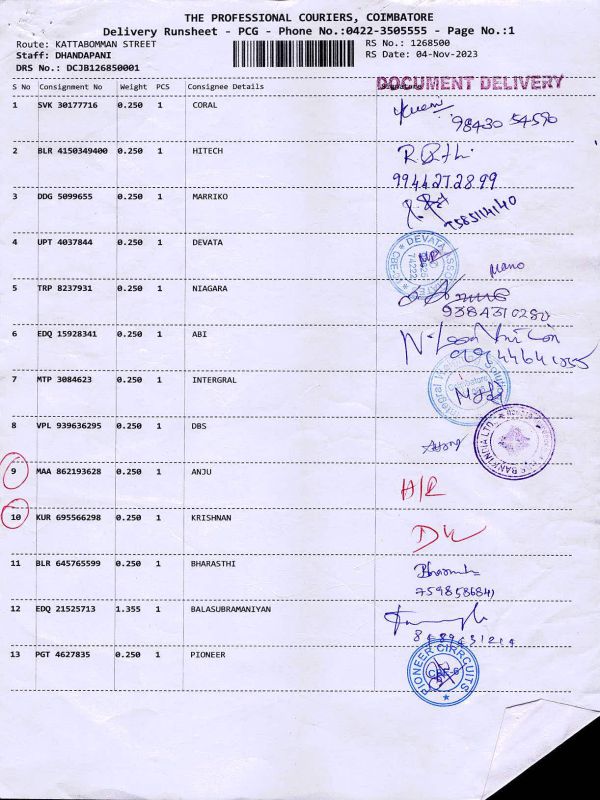 THE PROFESSIONAL COURIERS, COIMBATORE
Delivery Runsheet - PCG - Phone No.:0422-3505555 - Page No.:1
Route: KATTABOMMAN STREET RS No.: 1268500
Staff: DHANDAPANI RS Date: 04-Nov-2023
DRS No.: DCJB126850001
S No Consignment No Weight PCS Consignee Details DOCUMENT DELIVERY
1 SVK 30177716 0.250 1 CORAL
98430 54590
2 BLR 4150349400 0.250 1 HITECH
9944272899
3 DDG 5099655 0.250 1 MARRIKO
4 UPT 4037844 0.250 1 DEVATA
Mano
5 TRP 8237931 0.250 1 NIAGARA
6 EDQ 15928341 0.250 1 ABI
7 MTP 3084623 0.250 1 INTERGRAL
8 VPL 939636295 0.250 1 DBS
BANK INDIA LTD
9 MAA 862193628 0.250 1 ANJU
10 KUR 695566298 0.250 1 KRISHNAN
11 BLR 645765599 0.250 1 BHARASTHI
12 EDQ 21525713 1.355 1 BALASUBRAMANIYAN
13 PGT 4627835 0.250 1 PIONEER
PIONEER CIRRCUITS